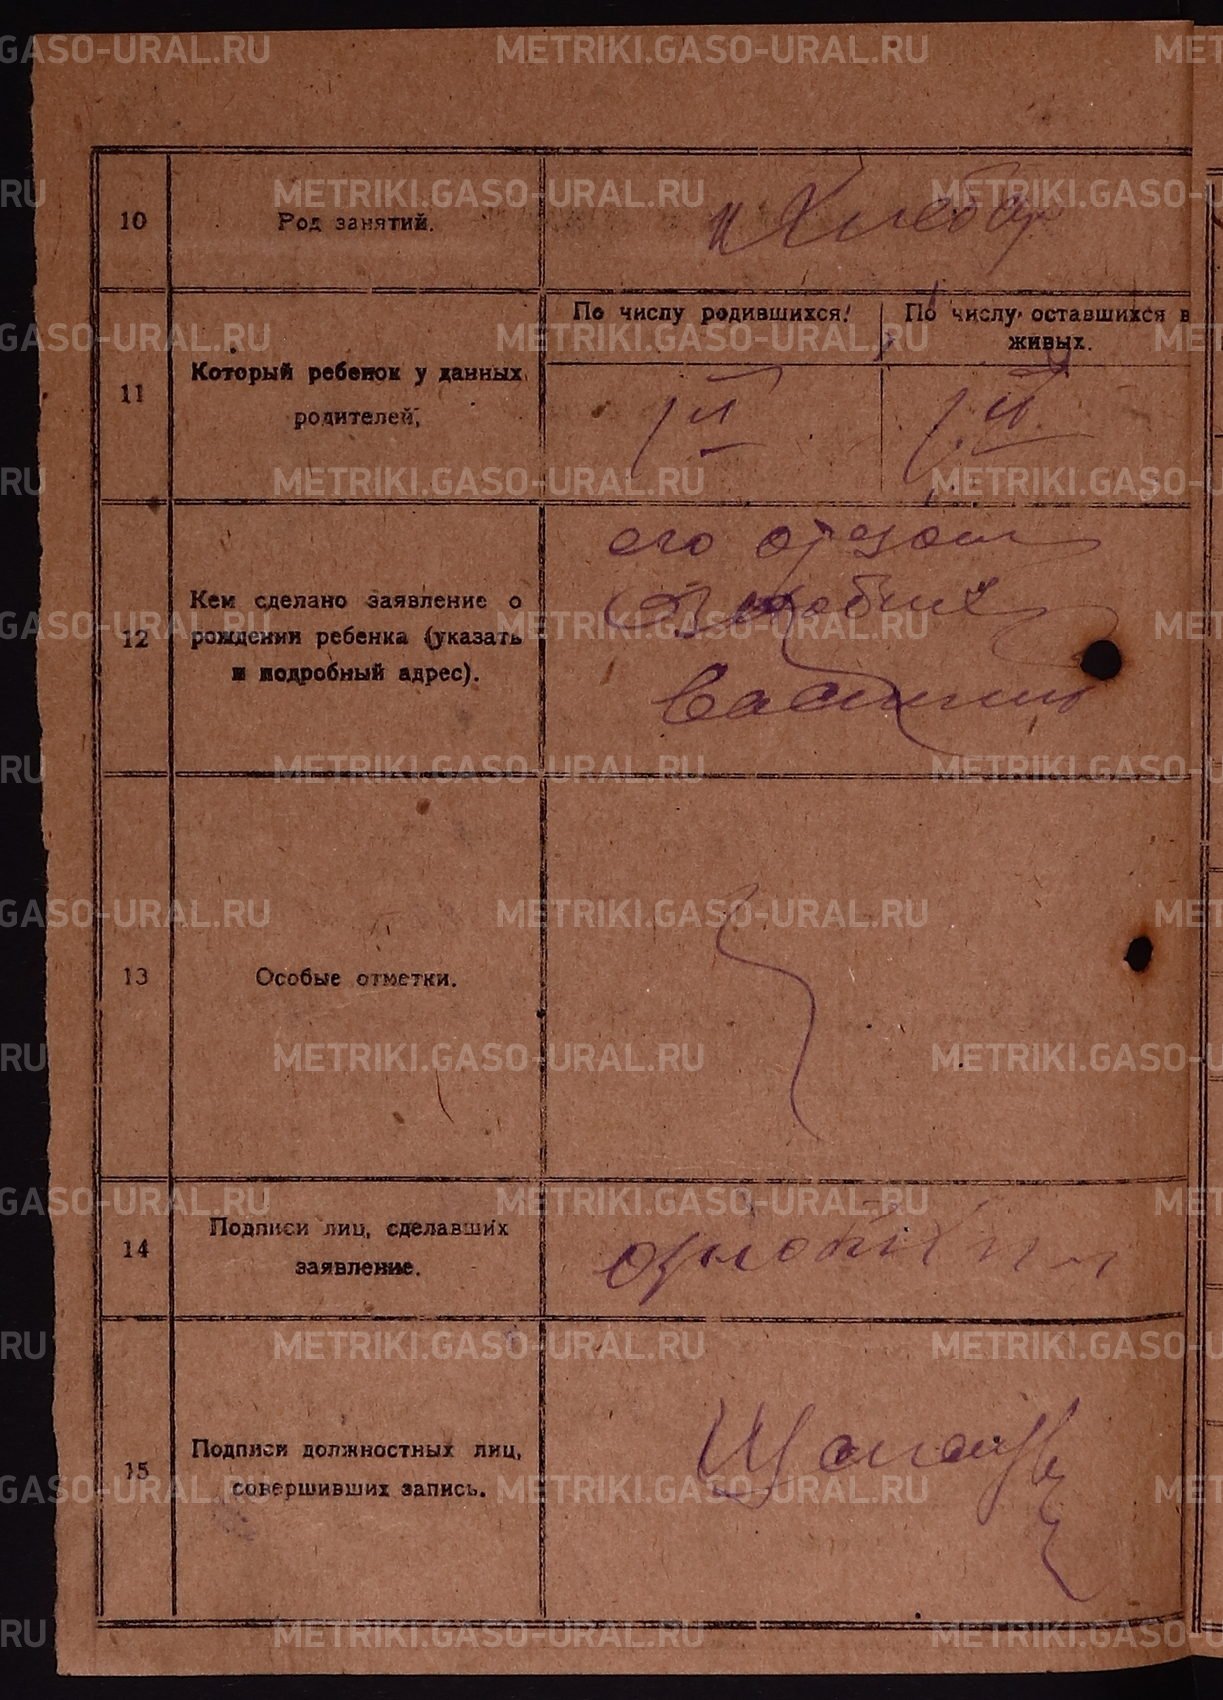 METRIKI.GASO-URAL.RU
10
Род занятий.
Хлебор
11
Который ребенок у данных
родителей,
По числу родившихся.
По числу оставшихся в
живых.
II
II
12
Кем сделано заявление о
рождении ребенка (указать
и подробный адрес).
его отцом
Ознобихин
Василий
13
Особые отметки.
14
Подписи лиц, сделавших
заявление.
15
Подписи должностных лиц,
совершивших запись.